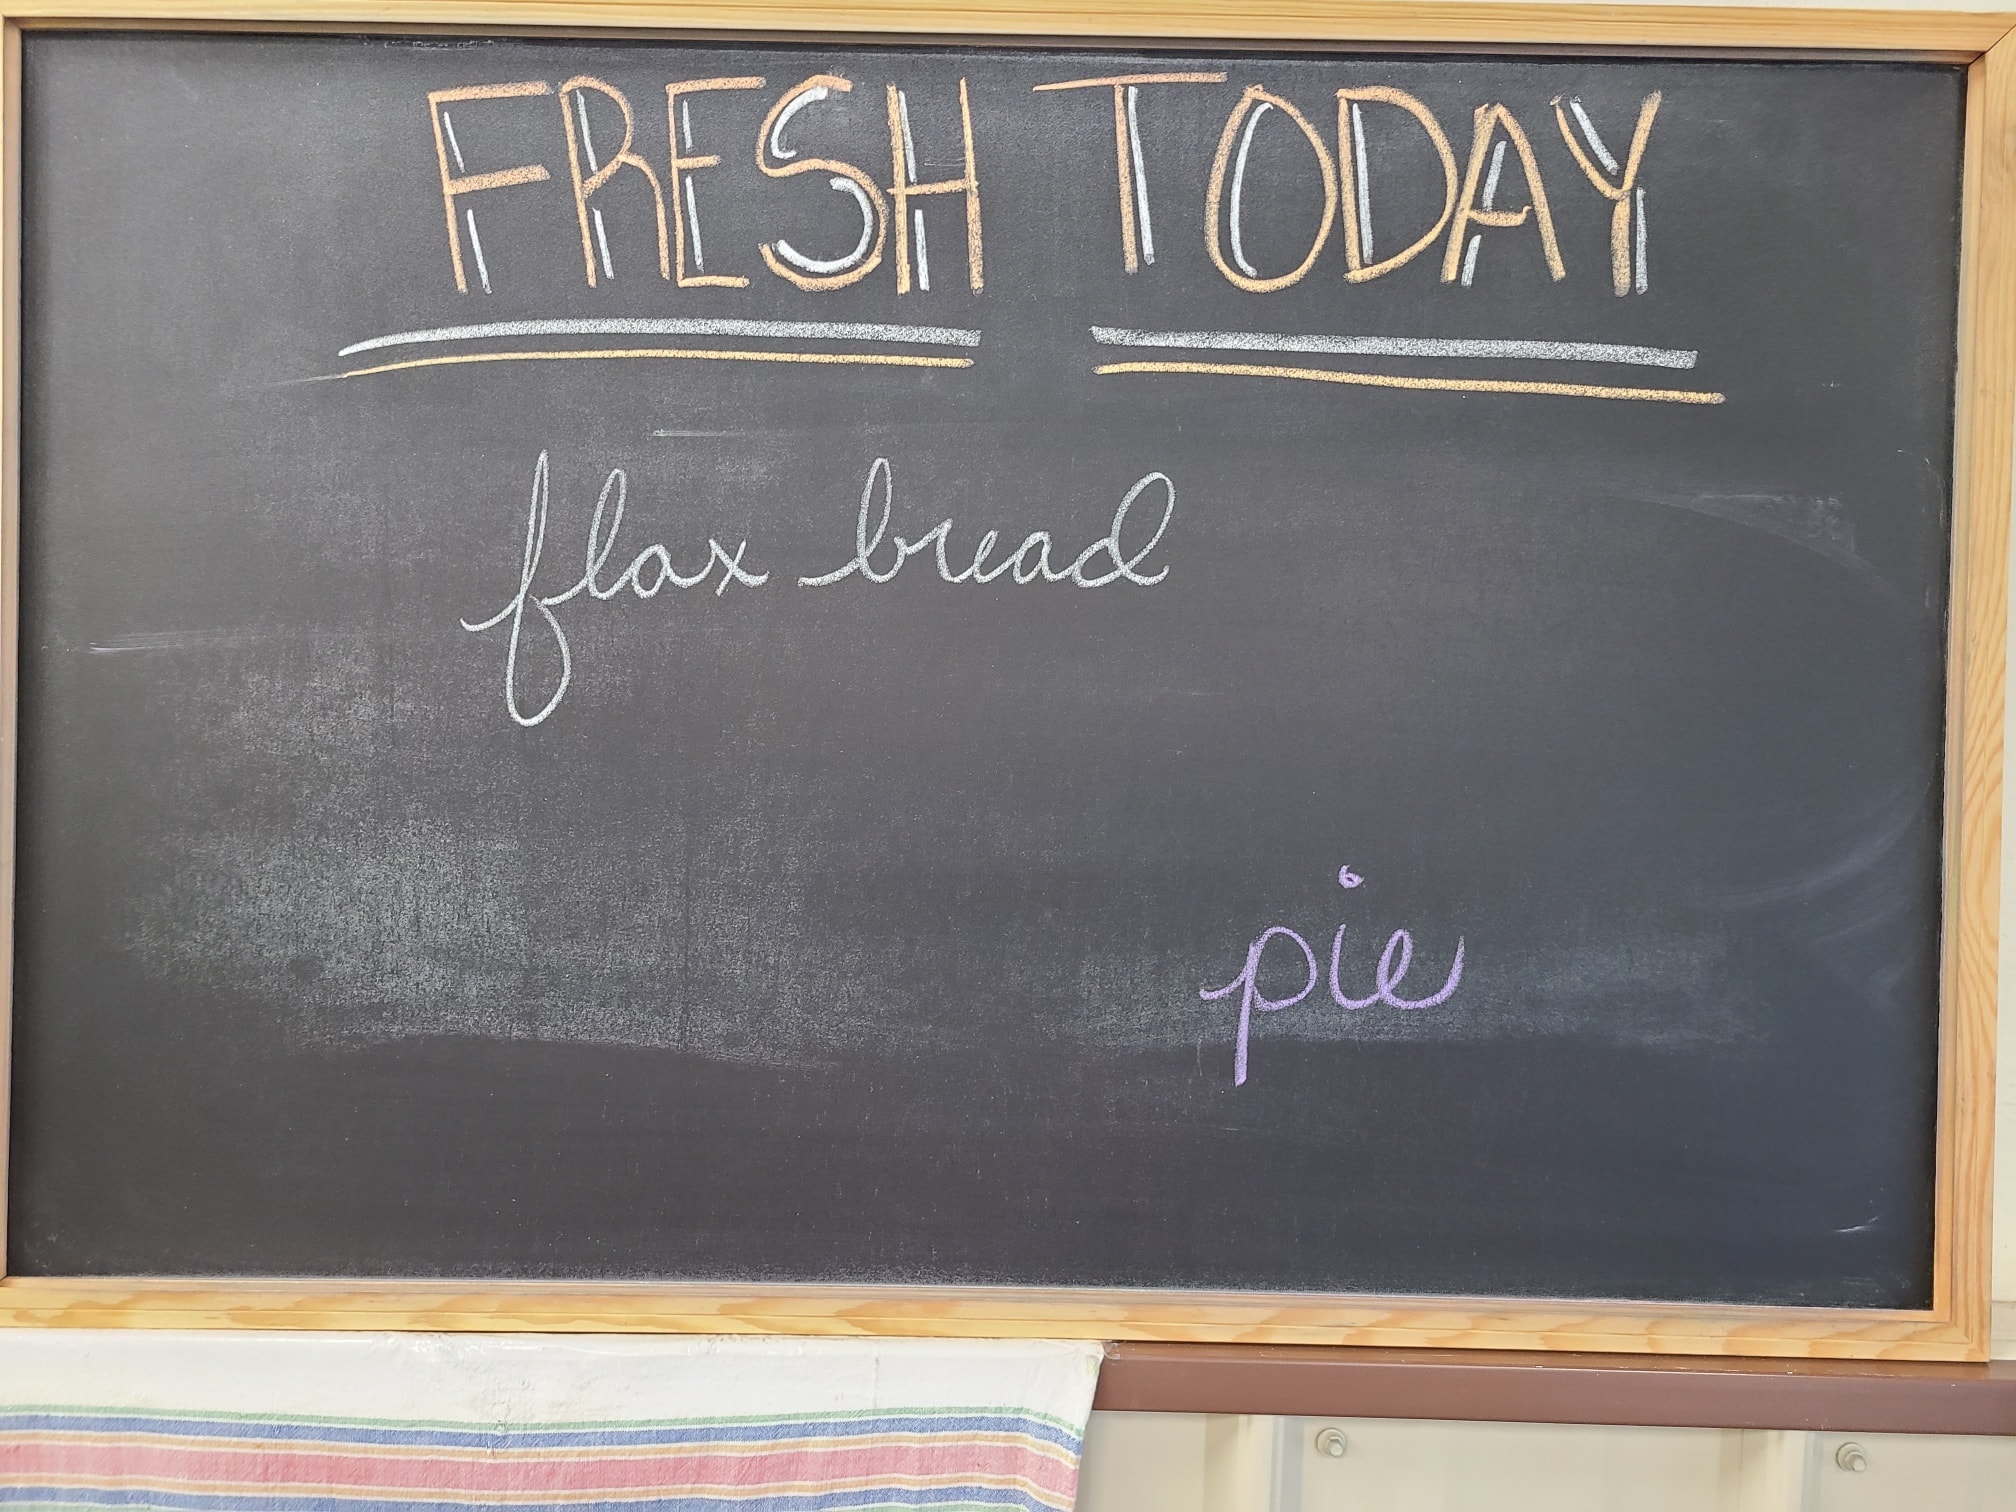 FRESH TODAY
flax bread
pie